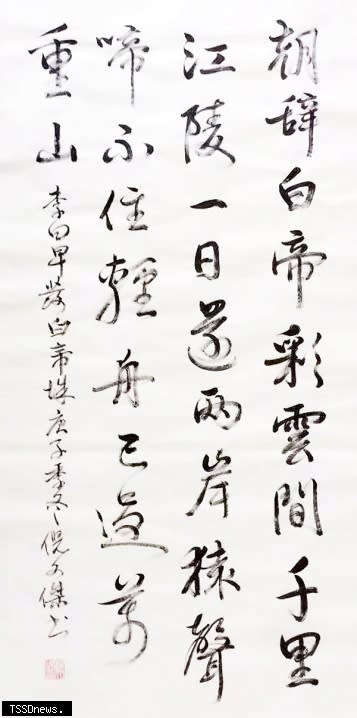 朝辭白帝彩雲間千里
江陵一日還兩岸猿聲
啼不住輕舟已過萬
重山
李白早發白帝城 庚子季冬 倪文傑書
TSSDnews.